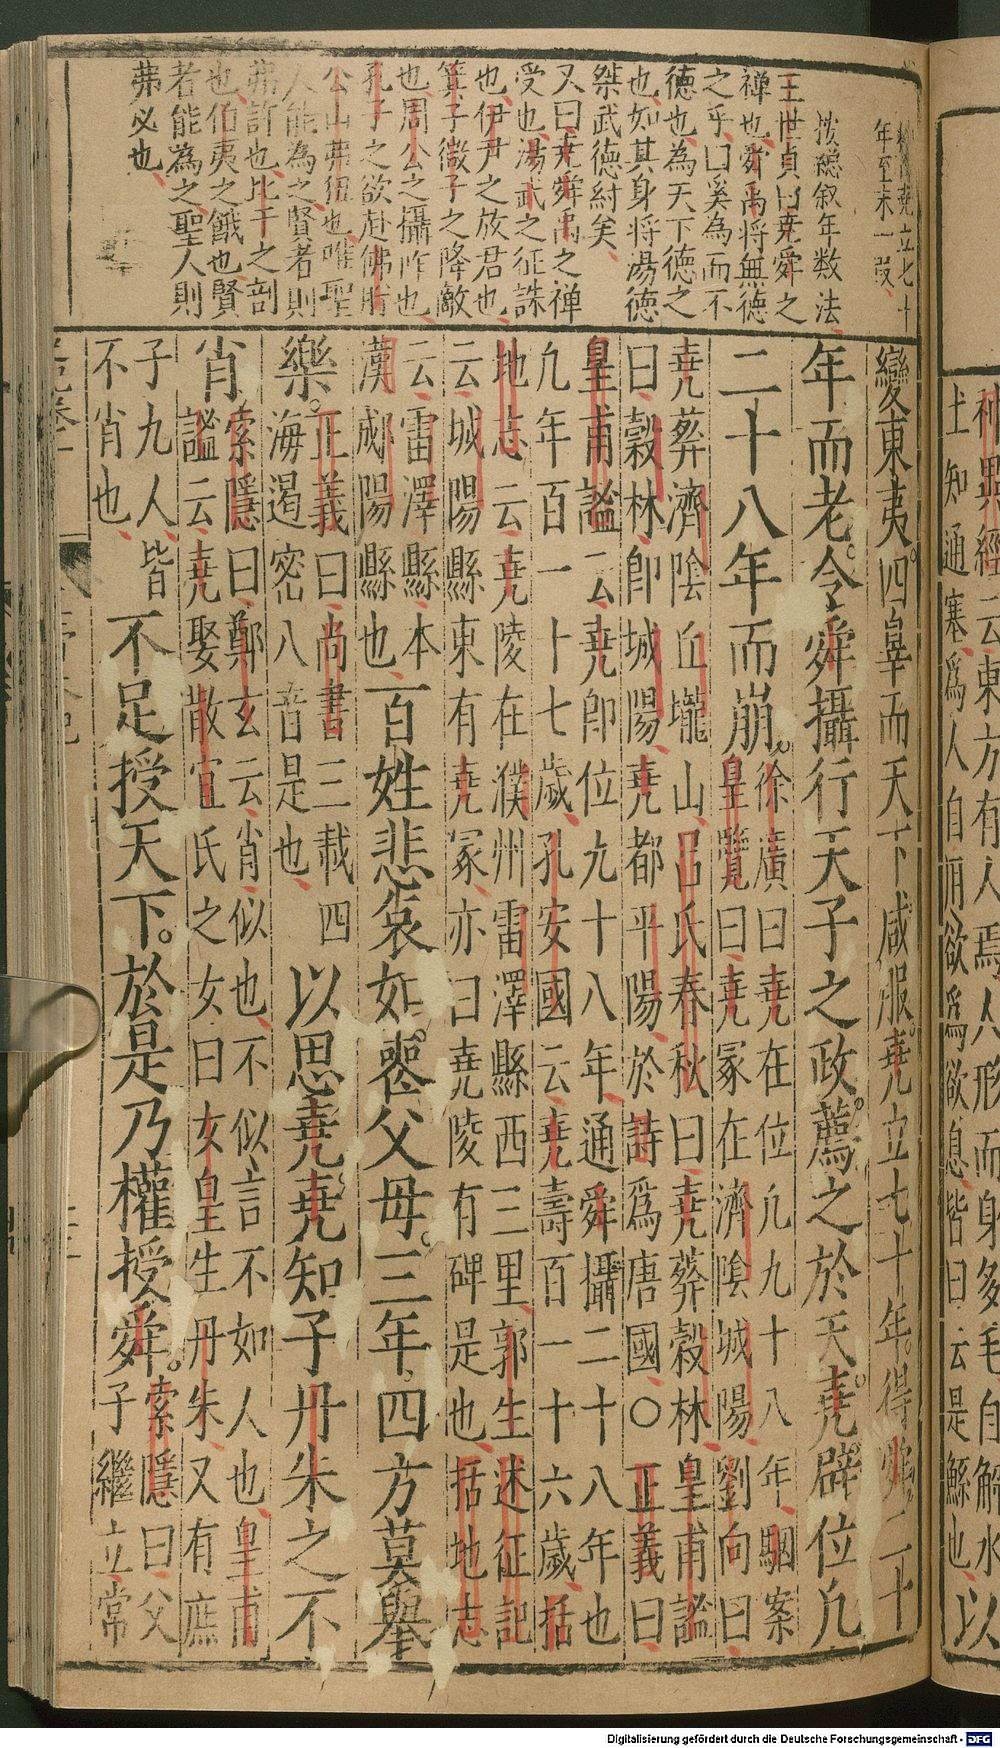 種異經云東方有人焉人形而身多毛自解水
土知通塞爲人自用欲爲欲息皆曰云是鯀也以
轅
年至末一段
按總叙年數法
王世貞曰堯舜之
禪也舜禹將無德
之乎曰奚為而不
德也為天下德之
也如其身将湯德
桀武德紂矣
又曰堯舜禹之禅
受也湯武之征誅
也伊尹之放君也
箕子微子之降敵
也周公之攝作也
孔子之欲赴佛肸
公山弗狃也唯聖
人能為之賢者則
弗許也比干之剖
也伯夷之餓也賢
者能為之聖人則
弗必也
變東夷四辠而天下咸服堯立七十年得舜二十
年而老令舜攝行天子之政薦之於天堯辟位凢
二十八年而崩
徐廣曰堯在位凢九十八年駰案
皇覽曰堯冢在濟隂城陽劉向曰
堯葬濟隂丘壠山吕氏春秋曰堯葬穀林皇甫謐
曰穀林卽城陽堯都平陽於詩爲唐國〇正義曰
皇甫謐云堯卽位九十八年通舜攝二十八年也
凢年百一十七歲孔安國云堯壽百一十六歲括
地志云堯陵在濮州雷澤縣西三里郭生述征記
云城陽縣東有堯冢亦曰堯陵有碑是也括地志
云雷澤縣本
漢郕陽縣也
百姓悲哀如喪父母三年四方莫舉
樂
正義曰尚書三載四
海遏密八音是也
以思堯堯知子丹朱之不
肖
索隱曰鄭玄云肖似也不似言不如人也皇甫
謐云堯娶散宜氏之女曰女皇生丹朱又有庶
子九人皆
不肖也
不足授天下於是乃權授舜
索隱曰父
子繼立常
Digitalisierung gefördert durch die Deutsche Forschungsgemeinschaft - DFG